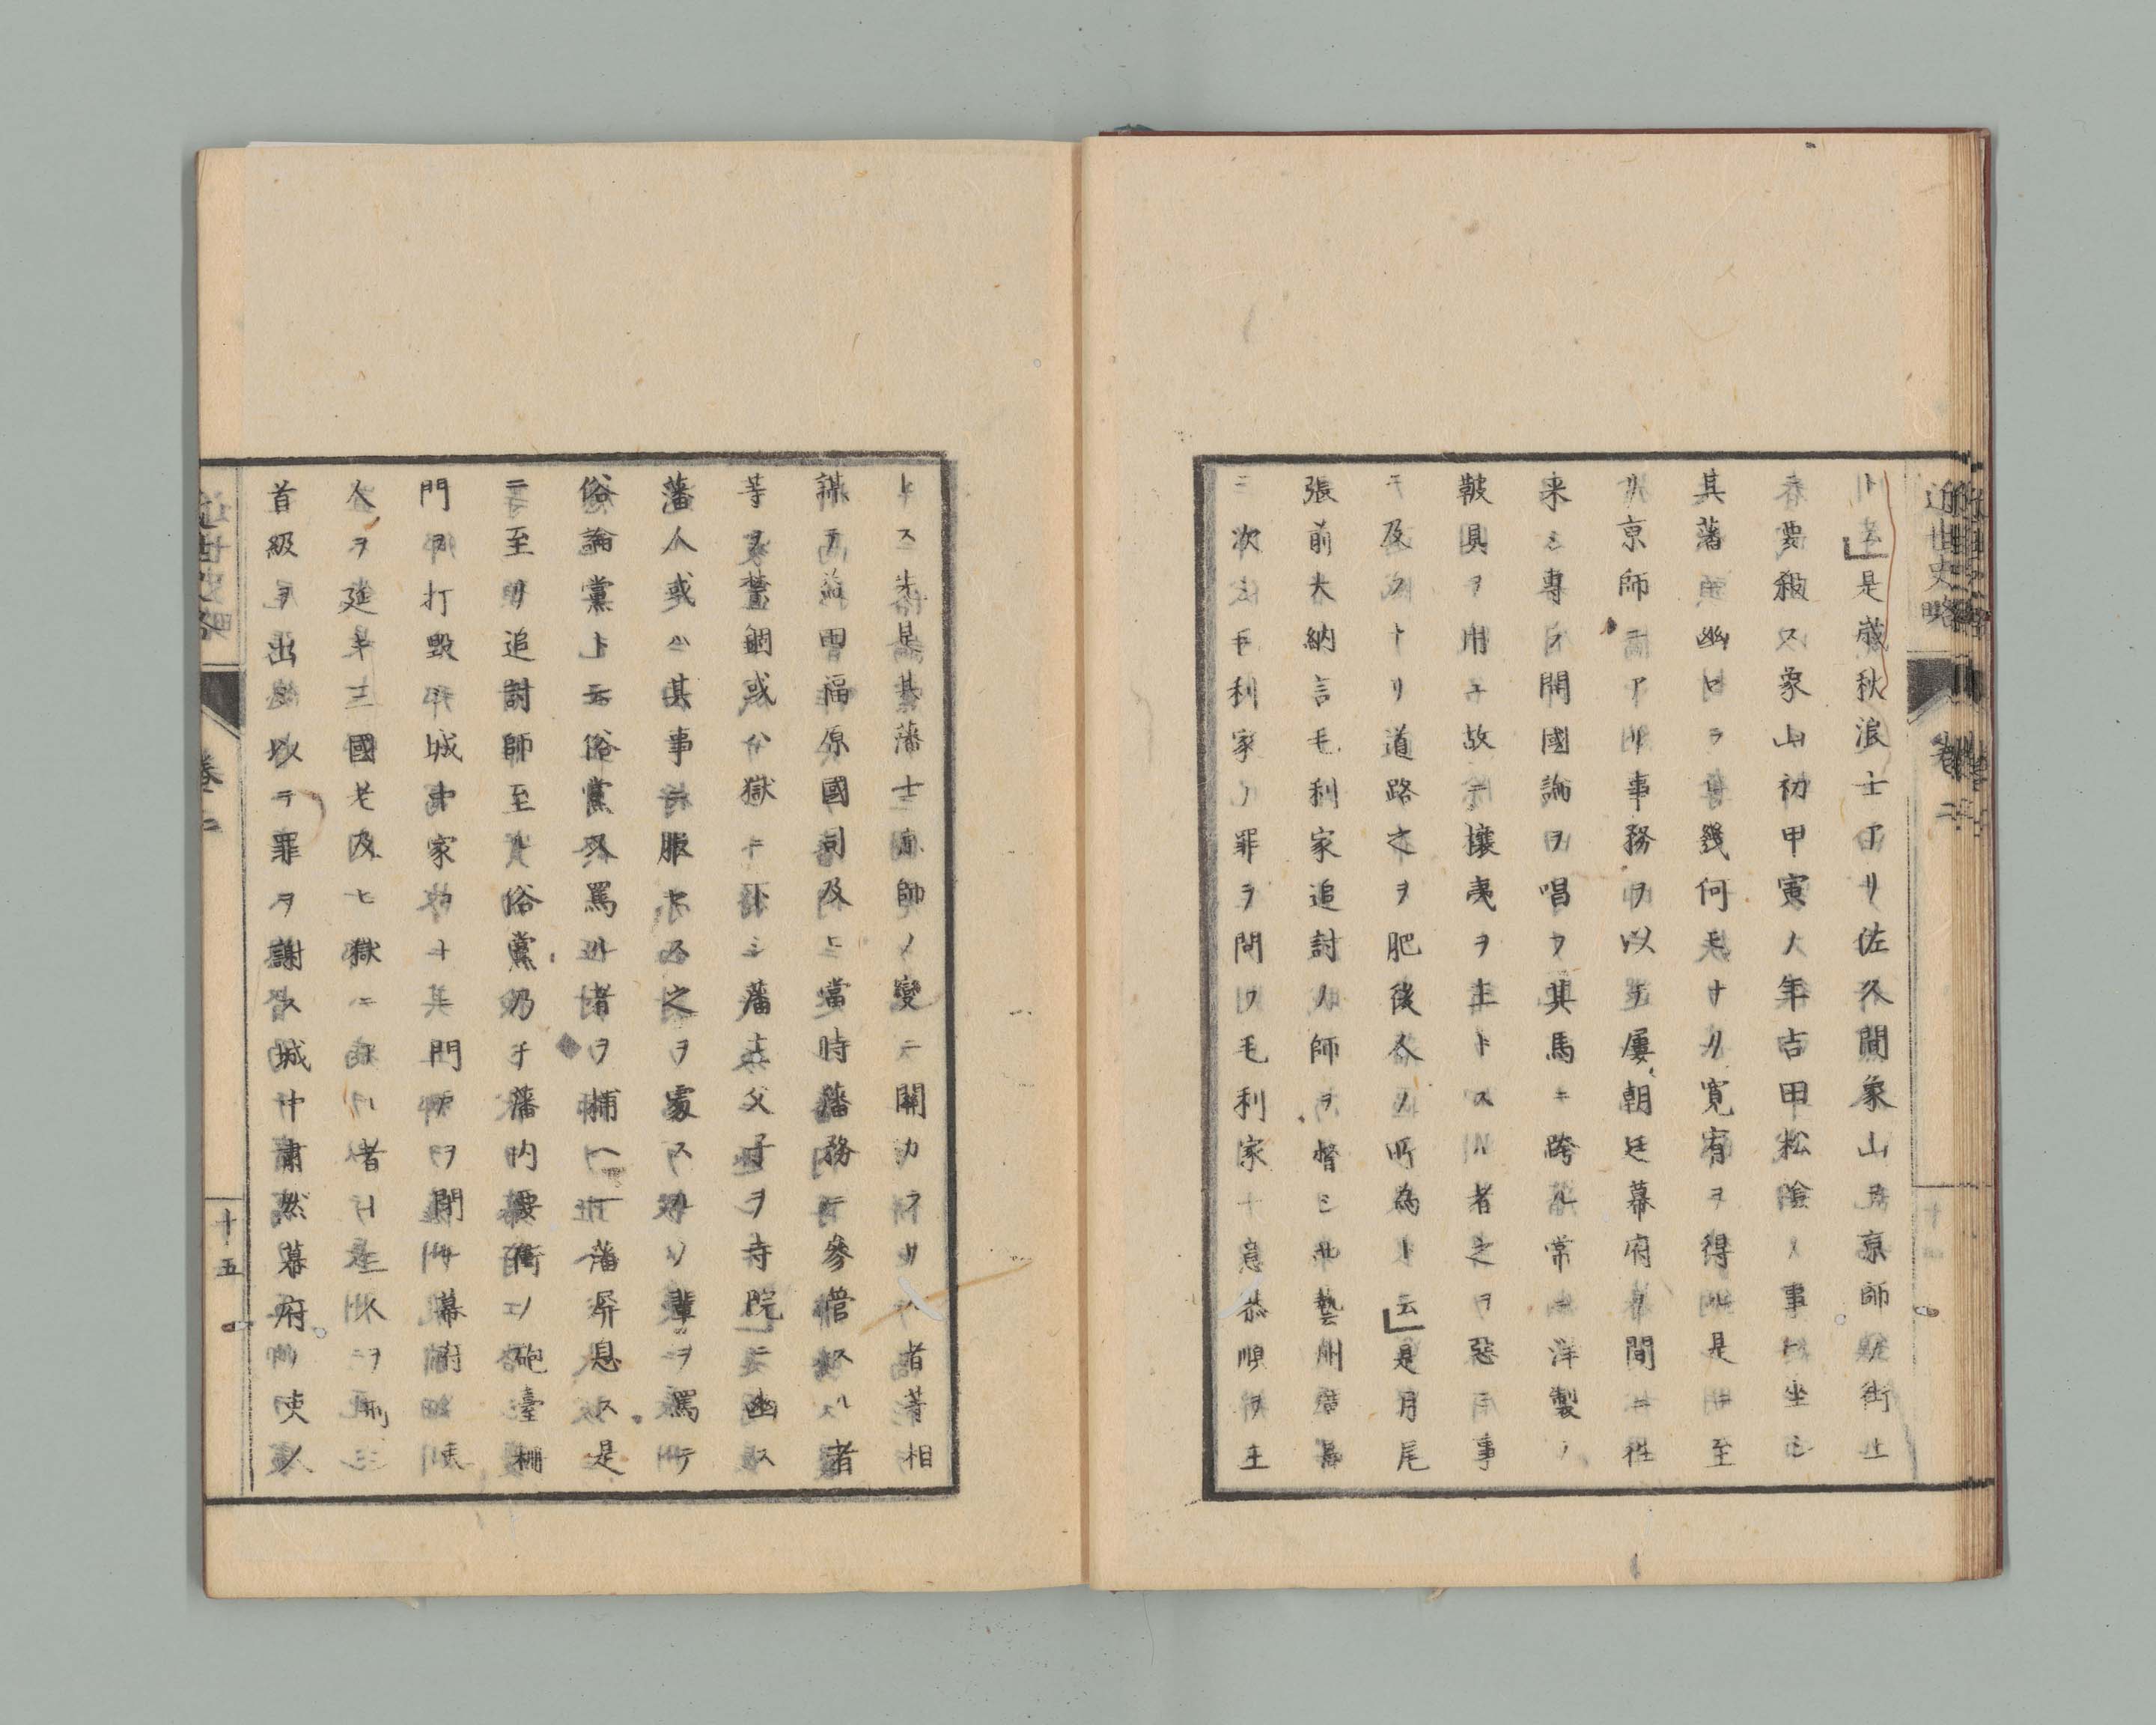 近世史略
卷二
十四
ト云」是歳秋浪士アリ佐久間象山ヲ京師ノ街上
ニ要殺ス象山初甲寅ノ年吉田松陰ノ事ニ坐シ
其藩ニ幽セラル幾何モナク寛宥ヲ得ル是ニ至
リ京師ニアリ事務ヲ以テ屢朝廷幕府ノ間ニ往
来シ專ラ開國論ヲ唱フ其馬ニ跨ル常ニ洋製ノ
鞍具ヲ用ユ故ニ攘夷ヲ主トスル者之ヲ惡ム事
ニ及フトリ道路之ヲ肥後人ノ所為ト云」是月尾
張前大納言毛利家追討ノ師ヲ督シ藝州廣島
ニ次ス毛利家ノ罪ヲ問フ毛利家十意恭順ヲ主
トス先是其藩士京師ノ變ニ關カラサル者等相
謀テ益田福原國司及ヒ當時藩務ニ參管スル者
等ヲ禁錮或ハ獄ニ下シ藩主父子ヲ寺院ニ幽ス
藩人或ハ其事ニ服セス之ヲ處スルノ輩ヲ罵テ
俗論黨ト云俗黨又罵ル者ヲ捕ヘ一藩屏息ス是
ニ至リ追討師至ル俗黨乃チ藩内要衝ノ砲臺柵
門ヲ打毀チ城中家コトニ其門戸ヲ閉サ幕府ノ
人ヲ延キ三國老及ヒ獄ニ者ノ人ヲ刑シ
首級ヲ出シ以テ罪ヲ謝ス城中肅然幕府ノ吏人
近世史略
卷二
十五